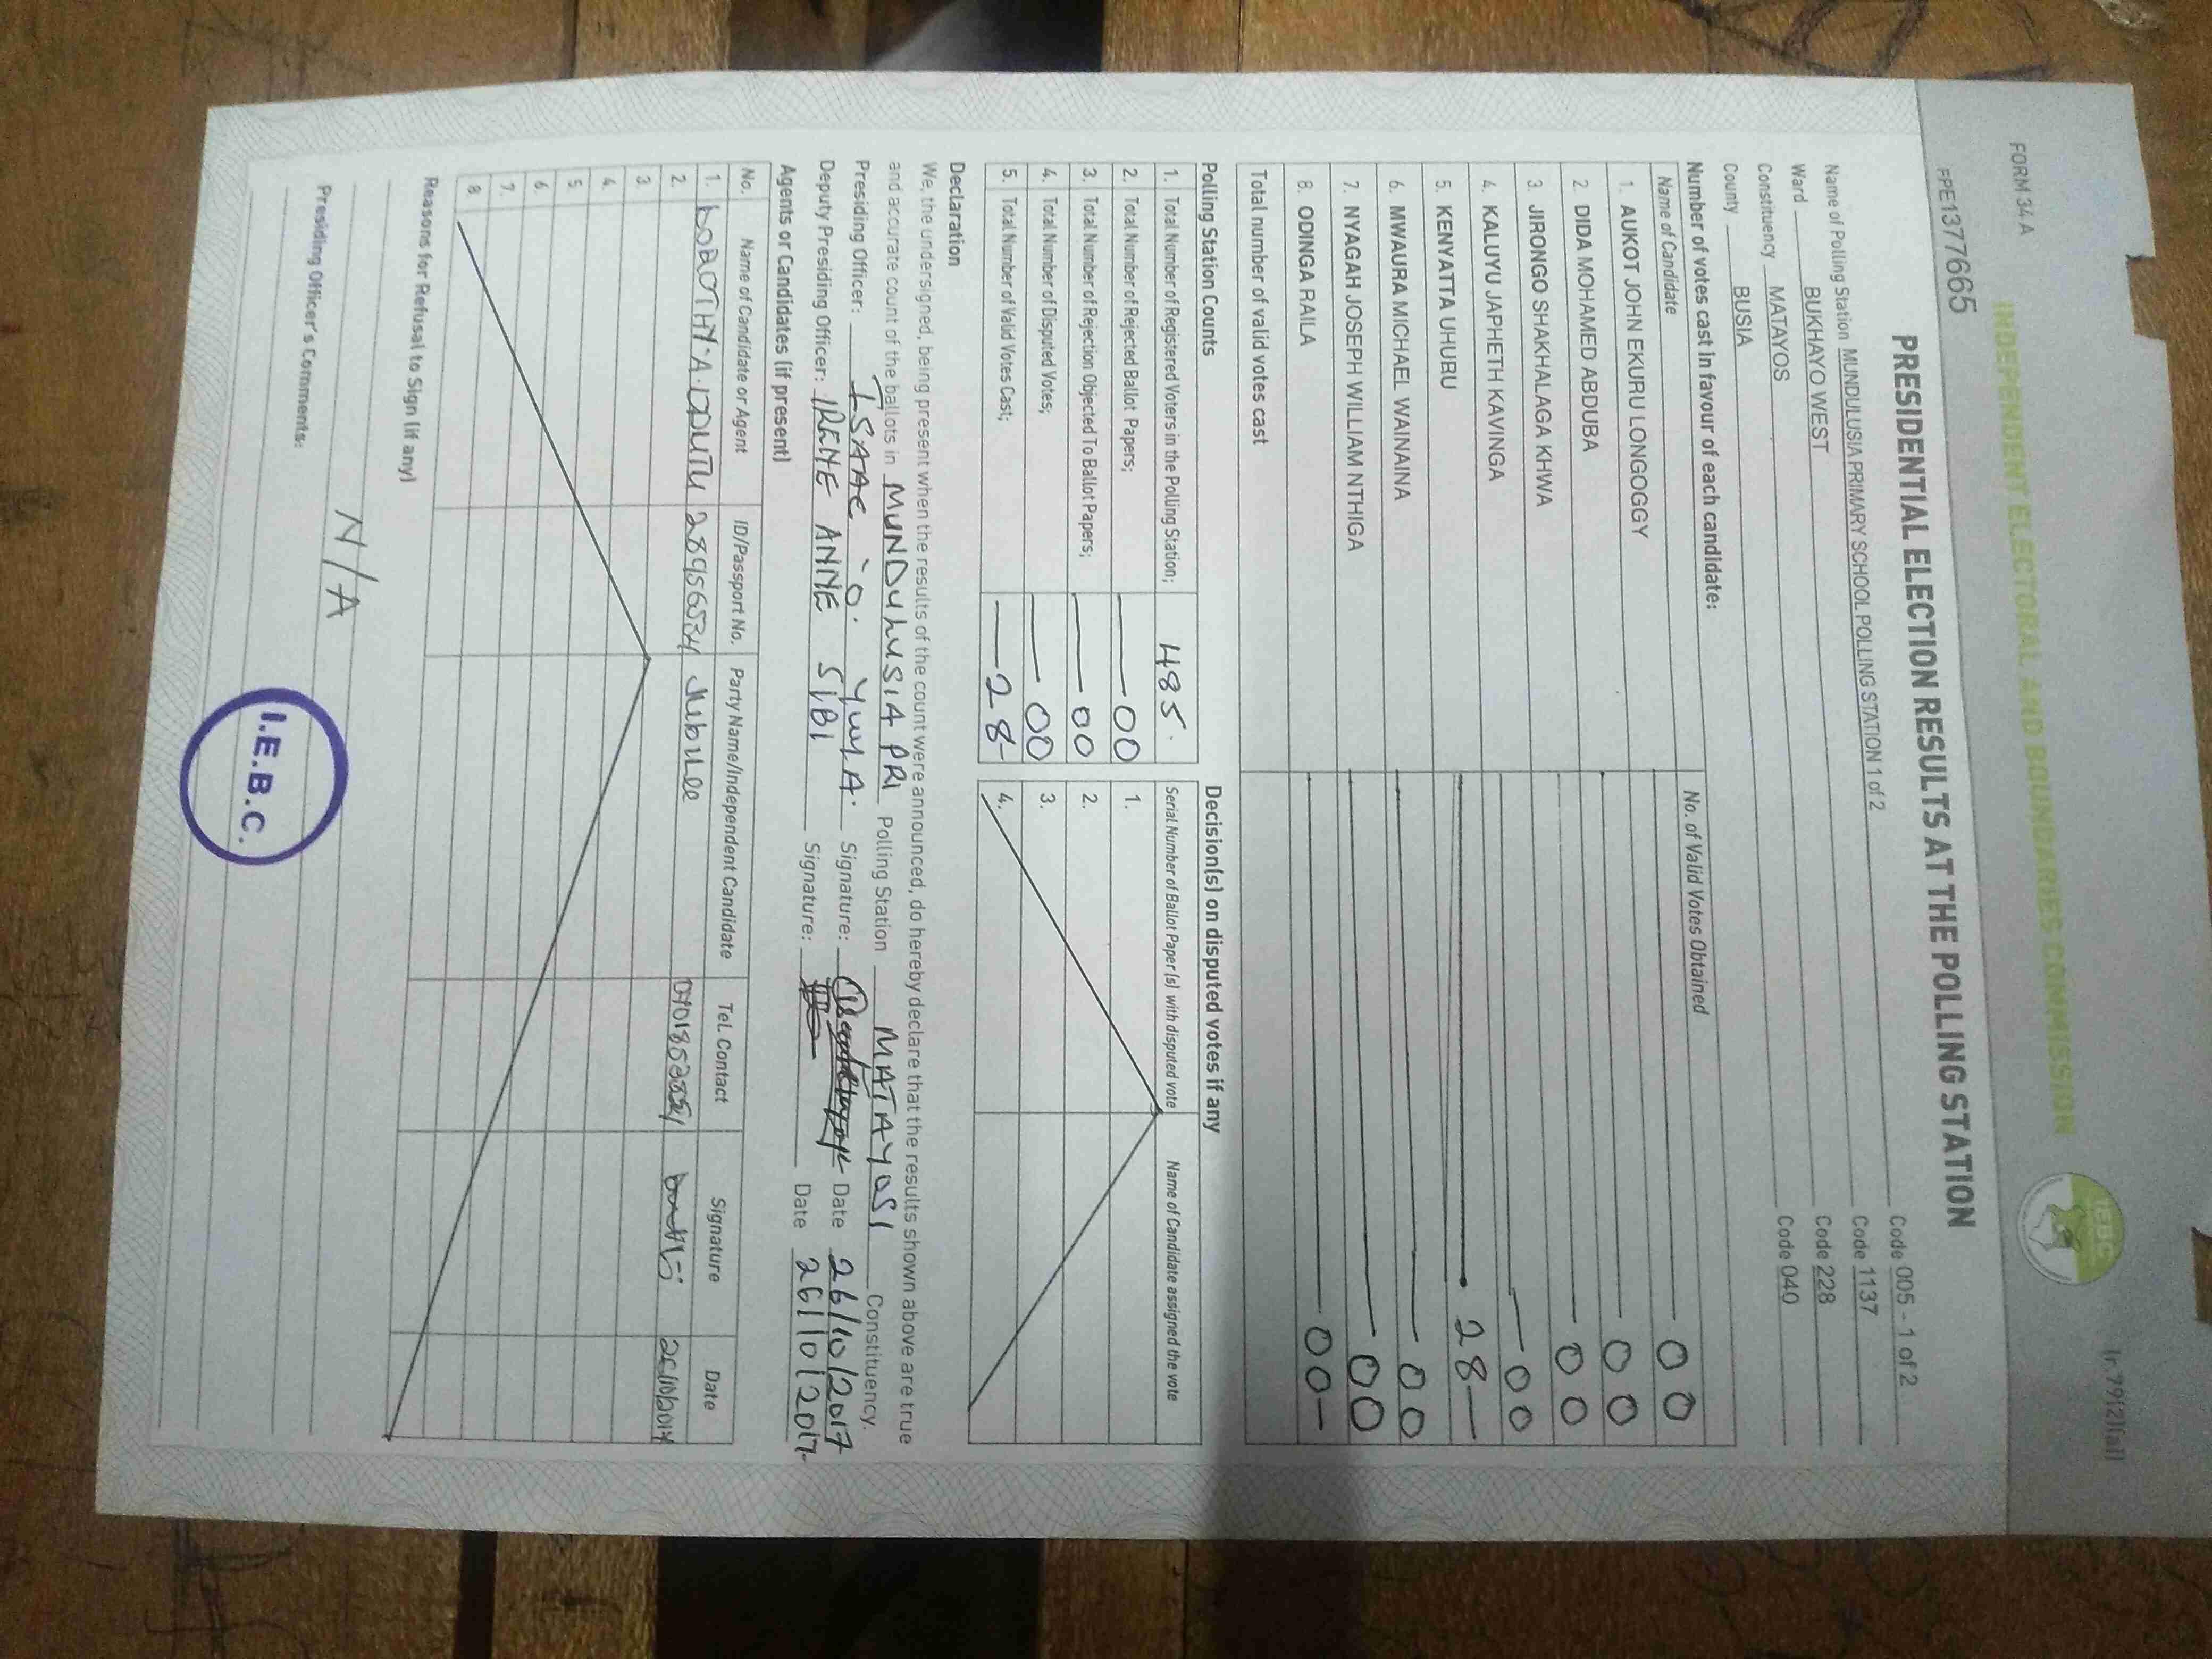 FORM 34 A
(r.79(2)(a))
INDEPENDENT ELECTORAL AND BOUNDARIES COMMISSION
IEBC
FPE1377665
PRESIDENTIAL ELECTION RESULTS AT THE POLLING STATION
Name of Polling Station MUNDULUSIA PRIMARY SCHOOL POLLING STATION 1 of 2 Code 005 - 1 of 2
Ward BUKHAYO WEST Code 1137
Constituency MATAYOS Code 228
County BUSIA Code 040
Number of votes cast in favour of each candidate:
Name of Candidate No. of Valid Votes Obtained
1. AUKOT JOHN EKURU LONGOGGY 00
2. DIDA MOHAMED ABDUBA 00
3. JIRONGO SHAKHALAGA KHWA 00
4. KALUYU JAPHETH KAVINGA 00
5. KENYATTA UHURU 28
6. MWAURA MICHAEL WAINAINA 00
7. NYAGAH JOSEPH WILLIAM NTHIGA 00
8. ODINGA RAILA 00
Total number of valid votes cast
Polling Station Counts
1. Total Number of Registered Voters in the Polling Station; 485.
2. Total Number of Rejected Ballot Papers; 00
3. Total Number of Rejection Objected To Ballot Papers; 00
4. Total Number of Disputed Votes; 00
5. Total Number of Valid Votes Cast; 28
Decision(s) on disputed votes if any
Serial Number of Ballot Paper(s) with disputed vote Name of Candidate assigned the vote
1.
2.
3.
4.
Declaration
We, the undersigned, being present when the results of the count were announced, do hereby declare that the results shown above are true
and accurate count of the ballots in MUNDULUSIA PRI Polling Station MATAYOS Constituency.
Presiding Officer: ISAAC O. Signature: Date 26/10/2017
Deputy Presiding Officer: IRENE ANNE SIBI Signature: Date 26/10/2017
Agents or Candidates (if present)
No. Name of Candidate or Agent ID/Passport No. Party Name/Independent Candidate Tel. Contact Signature Date
1.
2.
3.
4.
5.
6.
7.
8.
Reasons for Refusal to Sign (if any)
N/A
Presiding Officer's Comments:
I.E.B.C.